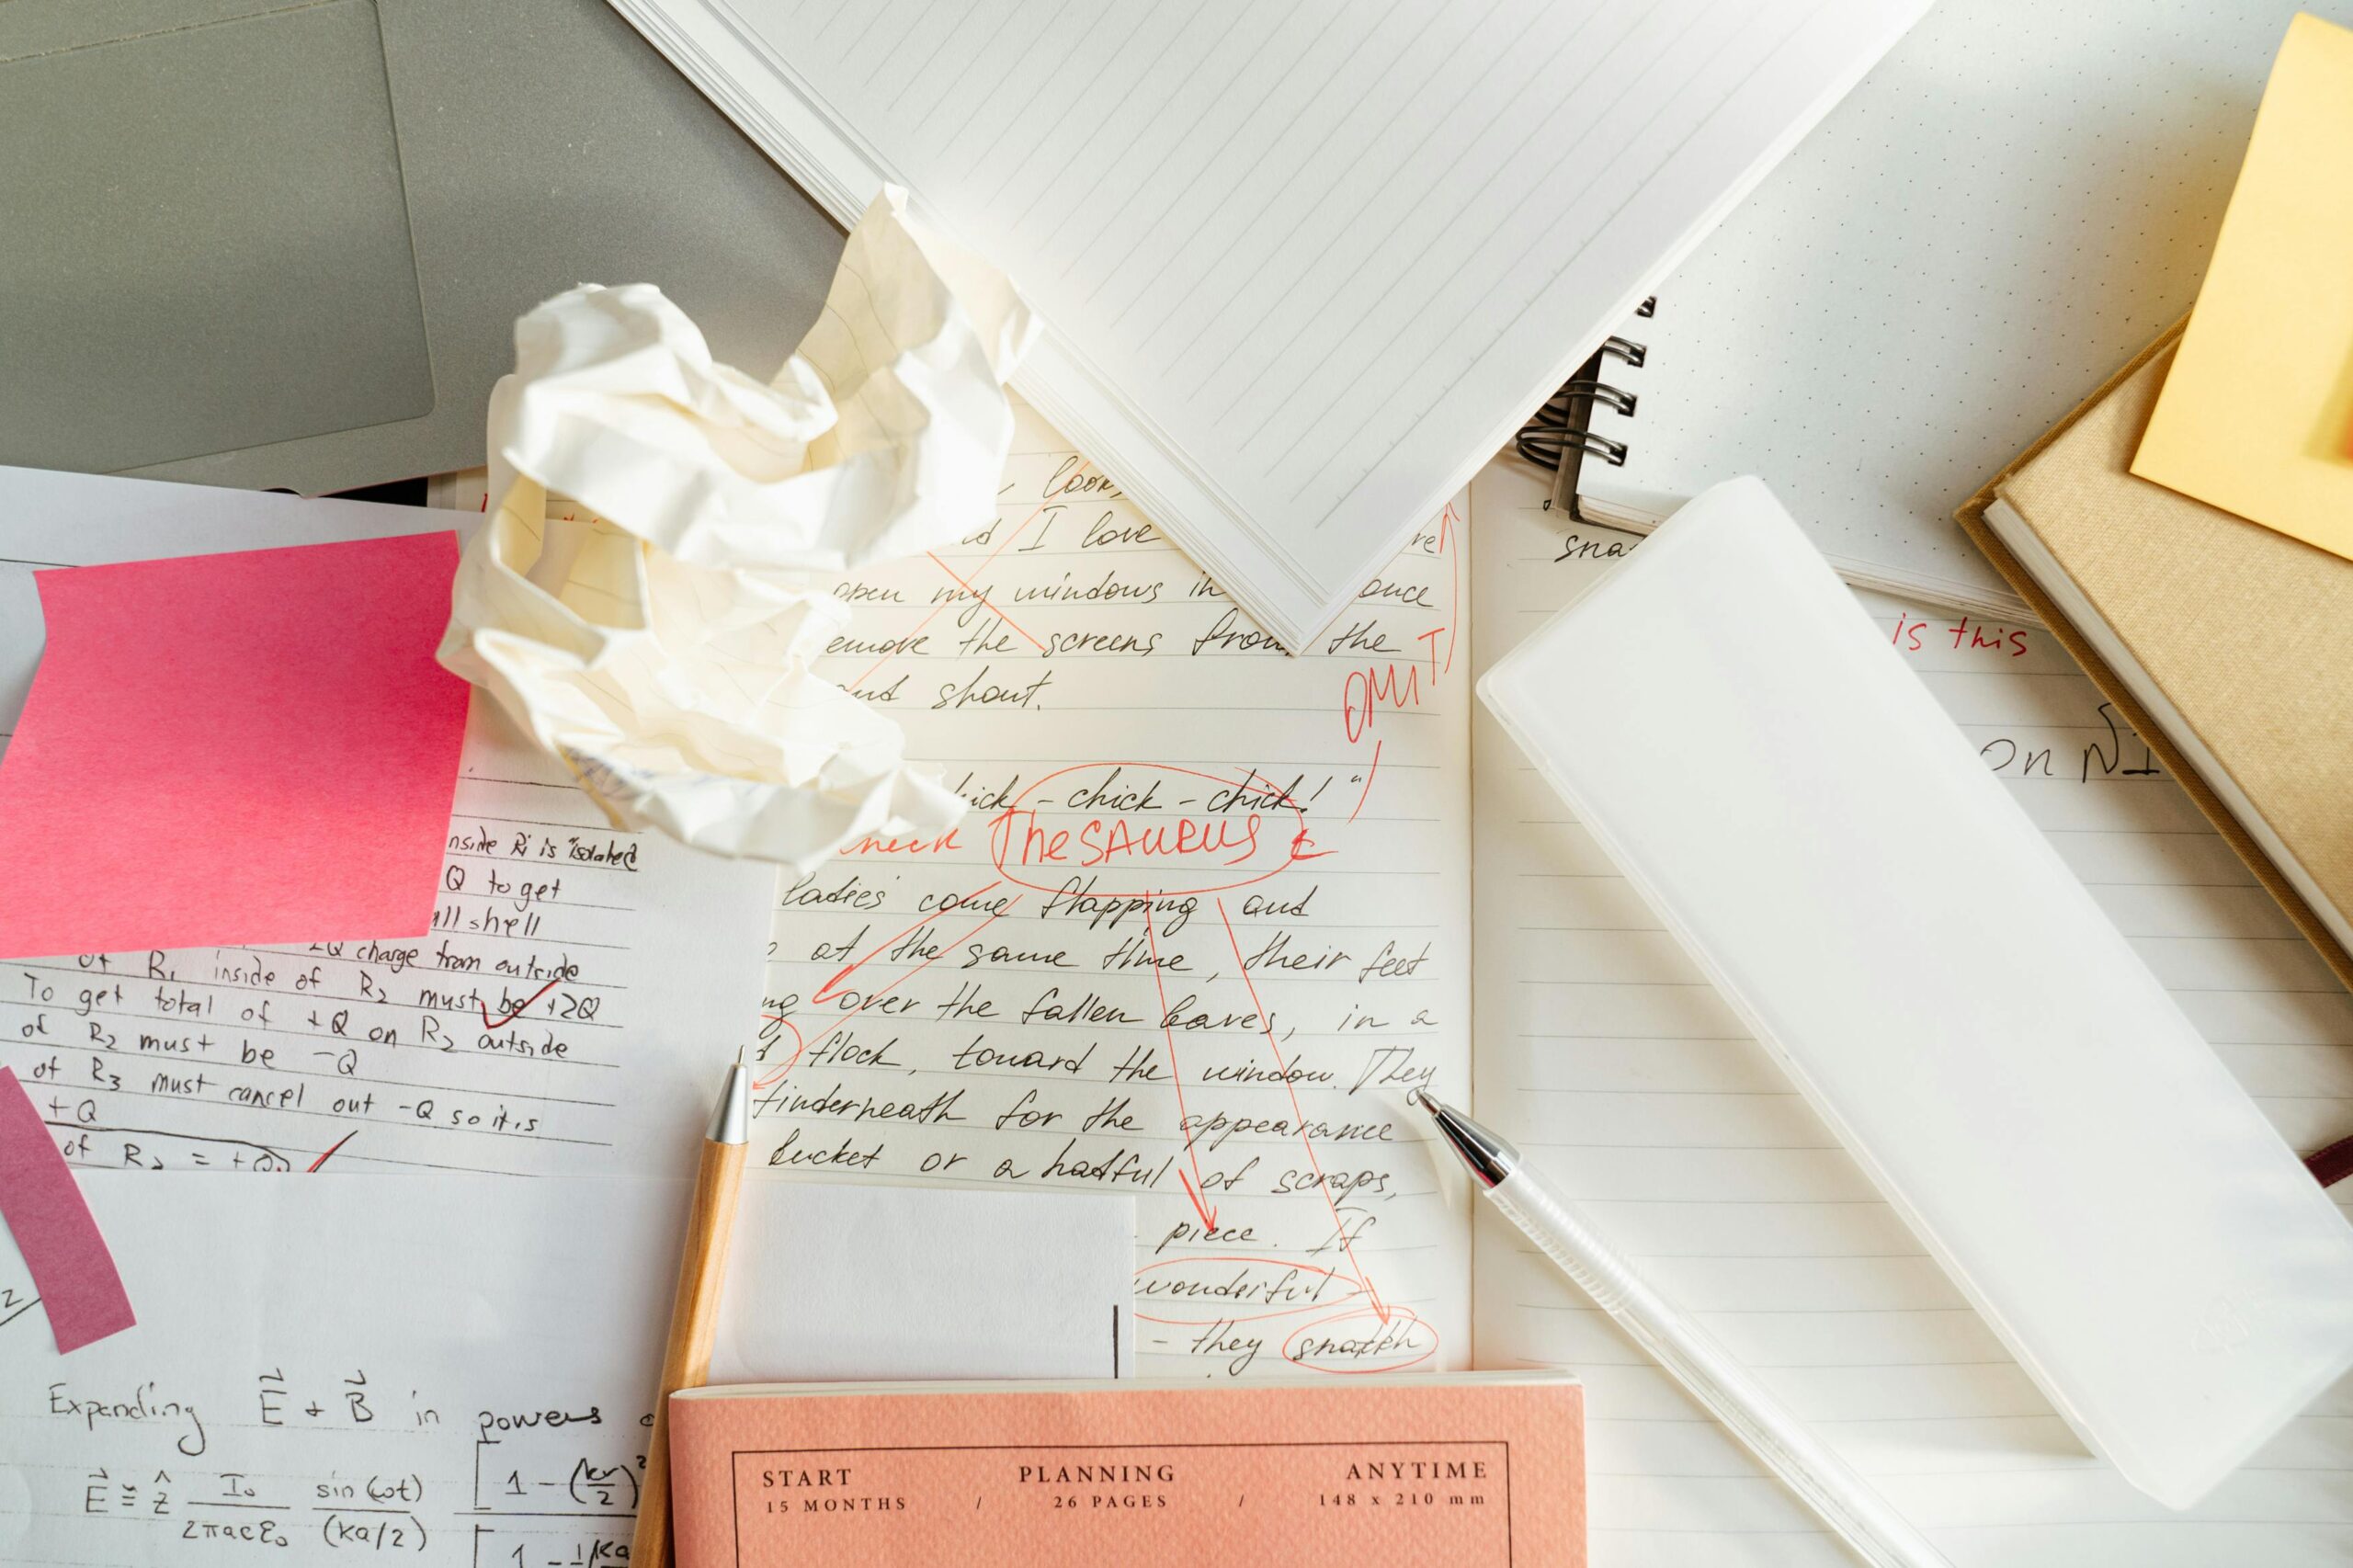 look,
I love
open my windows in
once
the screens from the
shout.
OMIT
- chick - chick! "
THESAURUS
ladies come flapping and
at the same time, their feet
over the fallen leaves, in a
flock, toward the window. They
for the appearance
bucket or a hatful of scraps,
piece. If
wonderful
- they snatch
is this
on
Ri is "isolated
Q to get
shell
2Q charge from outside
of R1 inside of R2 must be +2Q
To get total of +Q on R2 outside
of R2 must be -Q
of R3 must cancel out -Q so it is
+Q
of
Expanding E + B in powers
E ≅ ẑ I₀ / 2πacε₀ sin(ωt) / (ka/2) [ 1 - (kr/2)²
START PLANNING ANYTIME
15 MONTHS / 26 PAGES / 148 x 210 mm